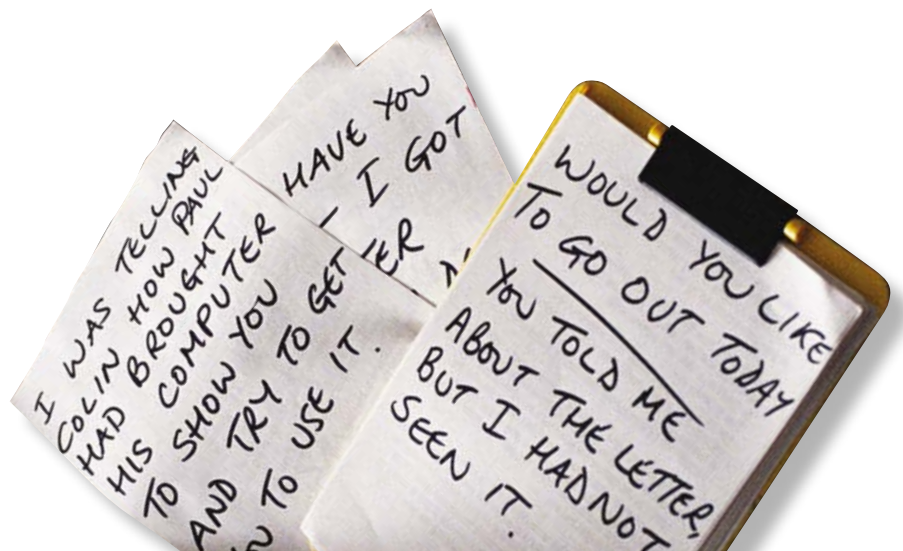 I WAS TELLING
COLIN HOW PAUL
HAD BROUGHT
HIS COMPUTER
TO SHOW YOU
AND TRY TO GET
TO USE IT.
HAVE YOU
– I GOT
ER
WOULD YOU LIKE
TO GO OUT TODAY
YOU TOLD ME
ABOUT THE LETTER,
BUT I HAD NOT
SEEN IT.